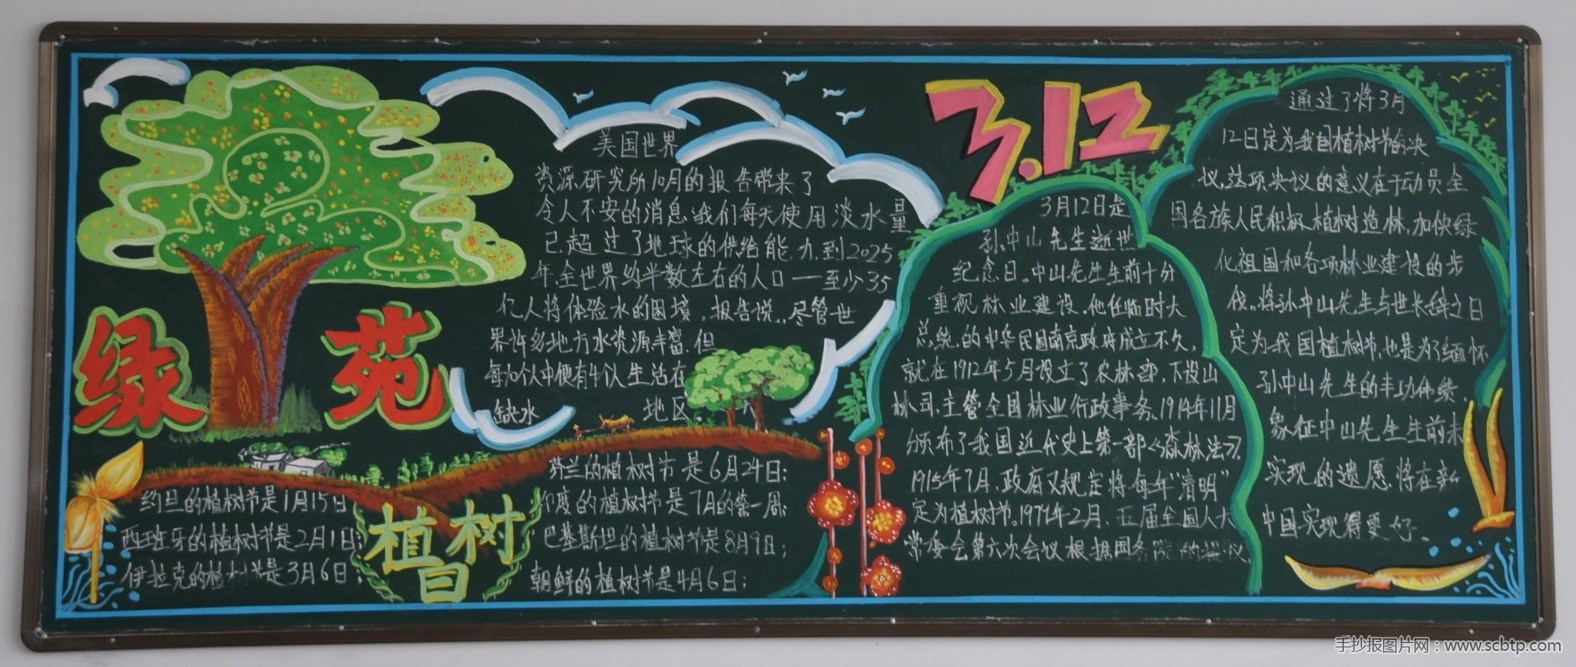 绿苑
美国世界
资源研究所10月的报告带来了
令人不安的消息,我们每天使用淡水量
已超过了地球的供给能力到2025
年,全世界约半数左右的人口——至少35
亿人将体验水的困境。报告说,尽管世
界许多地方水资源丰富,但
每10个人中便有4个人生活在
缺水 地区
约旦的植树节是1月15日
西班牙的植树节是2月1日;
伊拉克的植树节是3月6日;
植树日
芬兰的植树节是6月24日;
印度的植树节是7月的第一周;
巴基斯坦的植树节是8月9日;
朝鲜的植树节是4月6日;
3.12
3月12日是
孙中山先生逝世
纪念日。中山先生生前十分
重视林业建设。他任临时大
总统的中华民国南京政府成立不久,
就在1912年5月设立了农林部,下设山
林司,主管全国林业行政事务,1914年11月
颁布了我国近代史上第一部《森林法》,
1915年7月,政府又规定将每年“清明”
定为植树节。1979年2月,五届全国人大
常委会第六次会议根据国务院的提议
通过了将3月
12日定为我国植树节的决
议,这项决议的意义在于动员全
国各族人民积极植树造林,加快绿
化祖国和各项林业建设的步
伐。将孙中山先生与世长辞之日
定为我国植树节,也是为了缅怀
孙中山先生的丰功伟绩,
象征中山先生生前未
实现的遗愿将在新
中国实现得更好。
手抄报图片网:www.scbtp.com